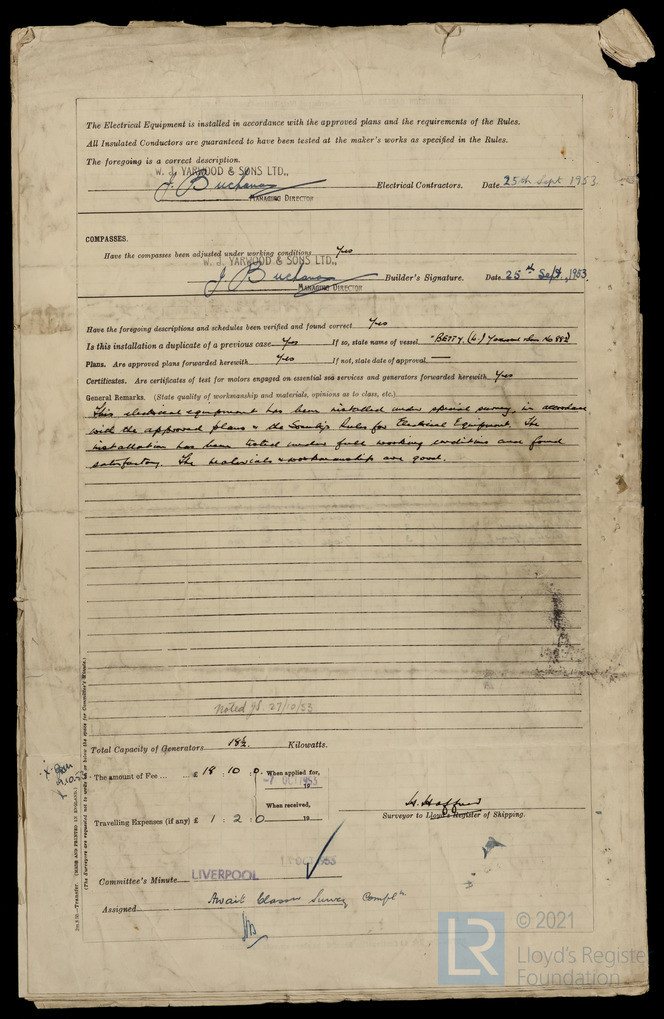 The Electrical Equipment is installed in accordance with the approved plans and the requirements of the Rules.
All Insulated Conductors are guaranteed to have been tested at the maker's works as specified in the Rules.
The foregoing is a correct description.
W. J. YARWOOD & SONS LTD.,
J. Buchanan Electrical Contractors. Date 25th Sept 1953.
MANAGING DIRECTOR
COMPASSES.
Have the compasses been adjusted under working conditions Yes
W. J. YARWOOD & SONS LTD.,
J Buchanan Builder's Signature. Date 25th Sept., 1953
MANAGING DIRECTOR
Have the foregoing descriptions and schedules been verified and found correct Yes
Is this installation a duplicate of a previous case Yes If so, state name of vessel "BETTY (L) Yarwood No 882
Plans. Are approved plans forwarded herewith Yes If not, state date of approval —
Certificates. Are certificates of test for motors engaged on essential sea services and generators forwarded herewith Yes
General Remarks. (State quality of workmanship and materials, opinions as to class, etc.)
This electrical equipment has been installed under special survey, in accordance
with the approved plans & the Society's Rules for Electrical Equipment. The
installation has been tested under full working conditions and found
satisfactory. The materials & workmanship are good.
Noted 27/10/53
Total Capacity of Generators 18½ Kilowatts.
The amount of Fee ... ... £ 18 : 10 : 0. When applied for,
OCT 1953
19
When received,
Travelling Expenses (if any) £ 1 : 2 : 0 19
Surveyor to Lloyd's Register of Shipping.
Committee's Minute LIVERPOOL OCT 1953
Assigned Await Classn Survey Complt
2m.5.50.—Transfer. (MADE AND PRINTED IN ENGLAND.)
(The Surveyors are requested not to write on or below the space for Committee's Minute.)
LR
© 2021
Lloyd's Register
Foundation